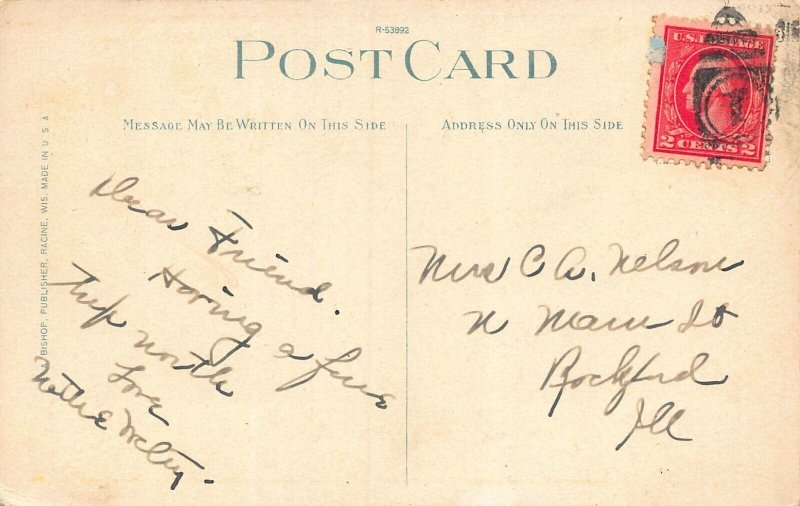 R-53892
POST CARD
MESSAGE MAY BE WRITTEN ON THIS SIDE
ADDRESS ONLY ON THIS SIDE
U.S. POSTAGE
2 CENTS 2
BISHOP, PUBLISHER, RACINE, WIS. MADE IN U S A
Dear Friend.
Having a fine
trip north
Love
Nettie
Mrs C A. Nelson
N Main St
Rockford
Ill